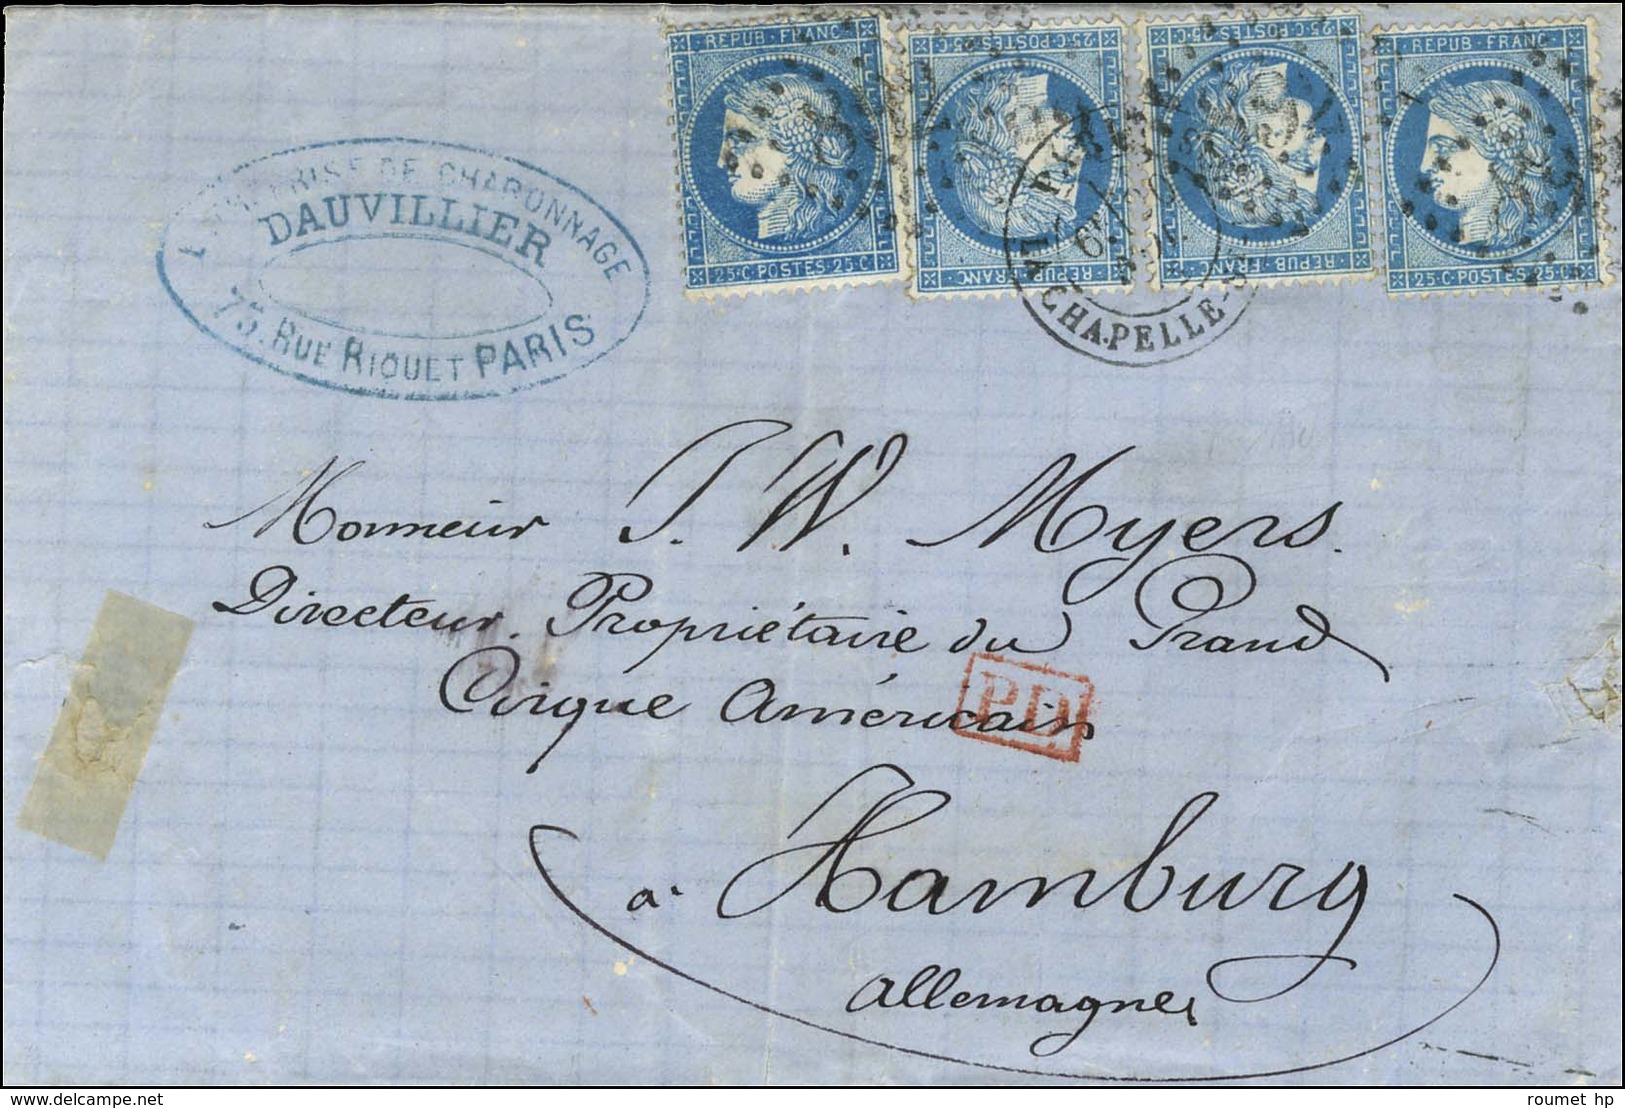 ENTREPRISE DE CHARONNAGE
DAUVILLIER
75. RUE RIQUET PARIS
REPUB · FRANC
25 · C · POSTES · 25 C
25 · C · POSTES · 25 · C
REPUB · FRANC
25 · C · POSTES · 25 · C
REPUB · FRANC
REPUB · FRANC
25 · C · POSTES · 25 · C
PARIS
LA CHAPELLE
Monsieur J. W. Myers.
Directeur. Propriétaire du Grand
Cirque Américain
P.D.
à Hamburg
Allemagne
roumet hp